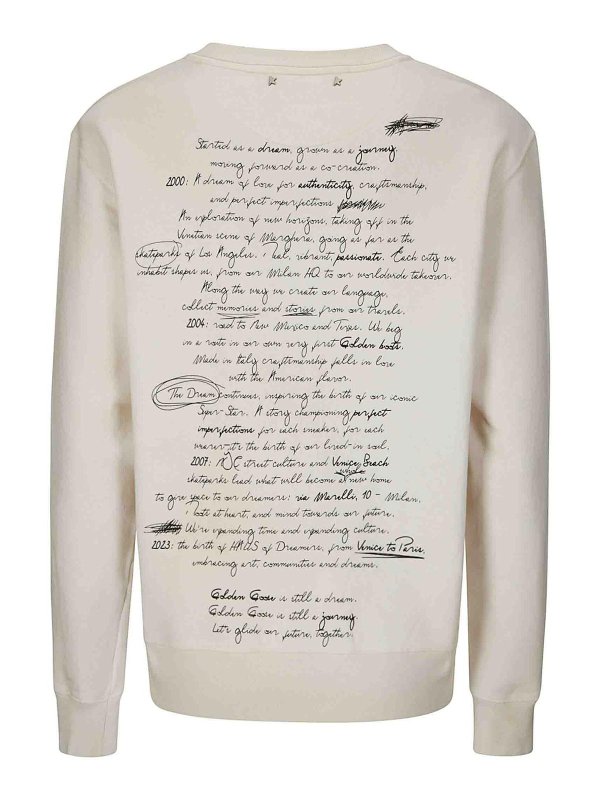 Started as a dream, grown as a journey,
moving forward as a co-creation.
2000: A dream of love for authenticity, craftsmanship,
and perfect imperfections
An exploration of new horizons, taking off in the
Venetian scene of Marghera, going as far as the
skateparks of Los Angeles. Real, vibrant, passionate. Each city we
inhabit shapes us, from our Milan HQ to our worldwide takeover.
Along the way we create our language,
collect memories and stories from our travels.
2004: road to New Mexico and Texas. We beg
in a route in our own very first Golden boots.
Made in Italy craftsmanship falls in love
with the American flavor.
The Dream continues, inspiring the birth of our iconic
Super-Star. A story championing perfect
imperfections for each sneaker, for each
wearer-it's the birth of our lived-in soul.
2007: NYC street culture and Venice Beach
skateparks lead what will become a whole new home
to give space to our dreamers: via Marelli, 10 - Milan,
roots at heart, and mind towards our future.
We're expanding time and expanding culture.
2023: the birth of HAUS of Dreamers, from Venice to Paris,
embracing art, communities and dreams.
Golden Goose is still a dream.
Golden Goose is still a journey.
Let's glide our future, together.